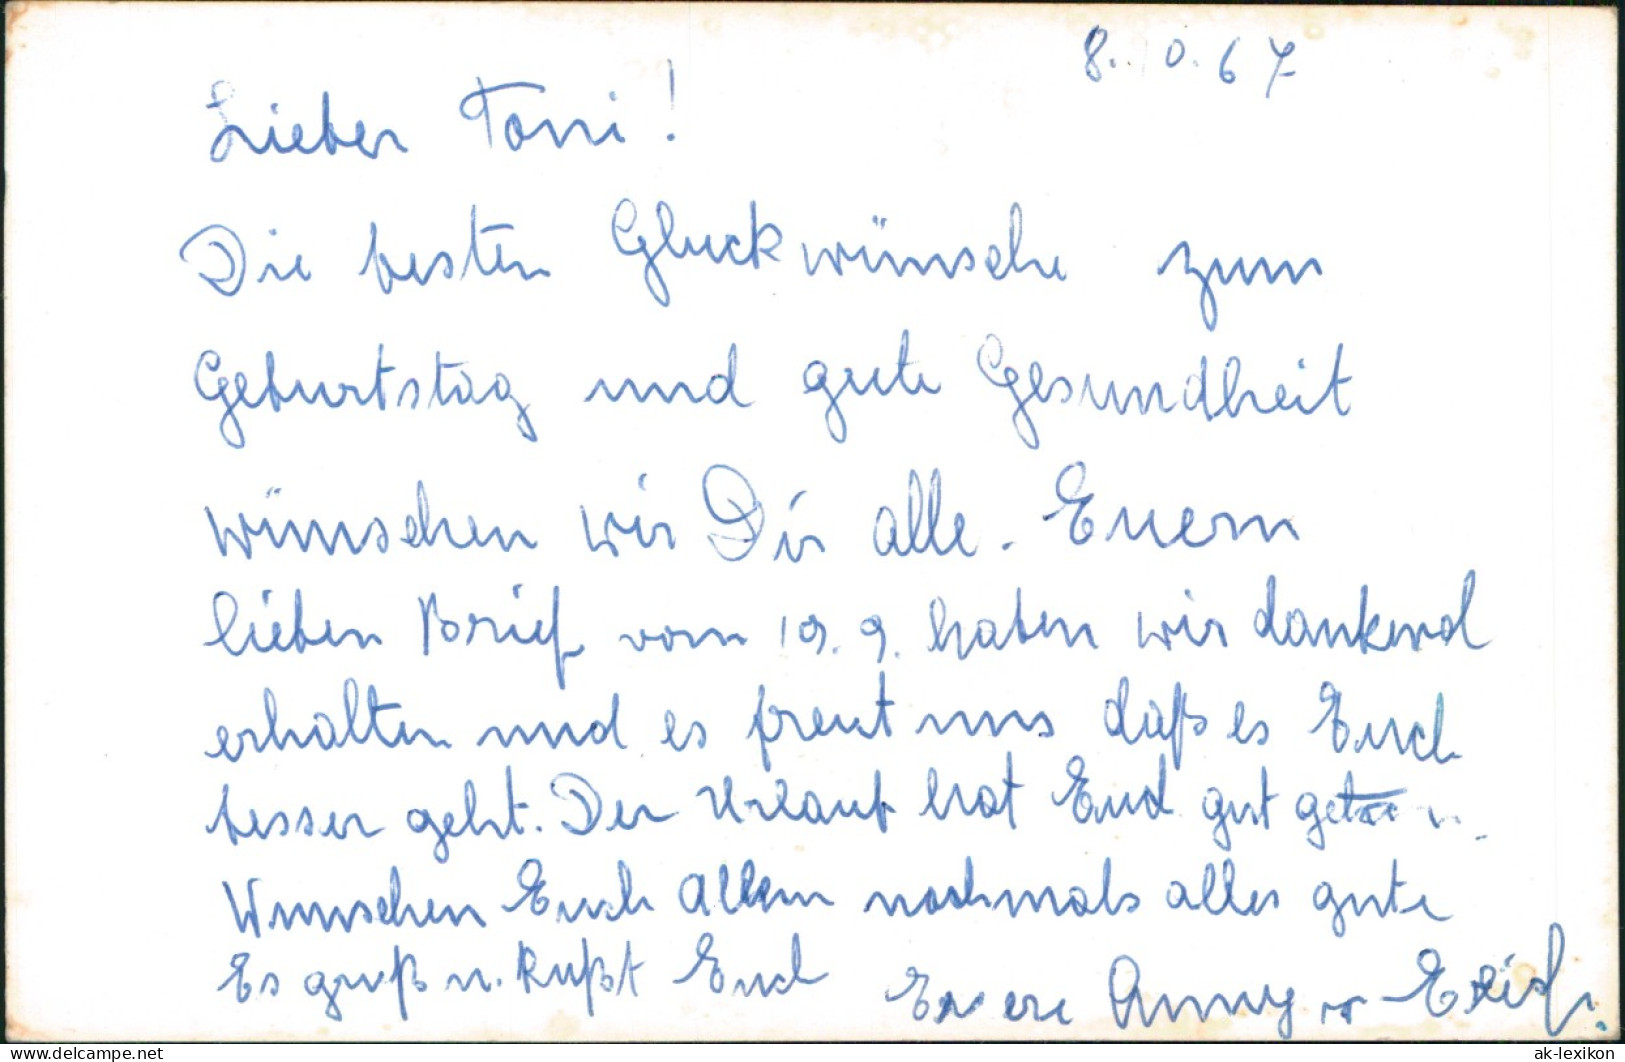 8. 10. 67
Lieber Toni!
Die besten Gluckwünsche zum
Geburtstag und gute Gesundheit
wünschen wir Dir alle. Euern
lieben Brief vom 19. 9. haben wir dankend
erhalten und es freut uns daß es Euch
besser geht. Der Urlaub hat Euch gut getan.
Wunschen Euch Allen nochmals alles gute
Es gruß u. kußt Euch Euere Anny u Erich.
ak-lexikon